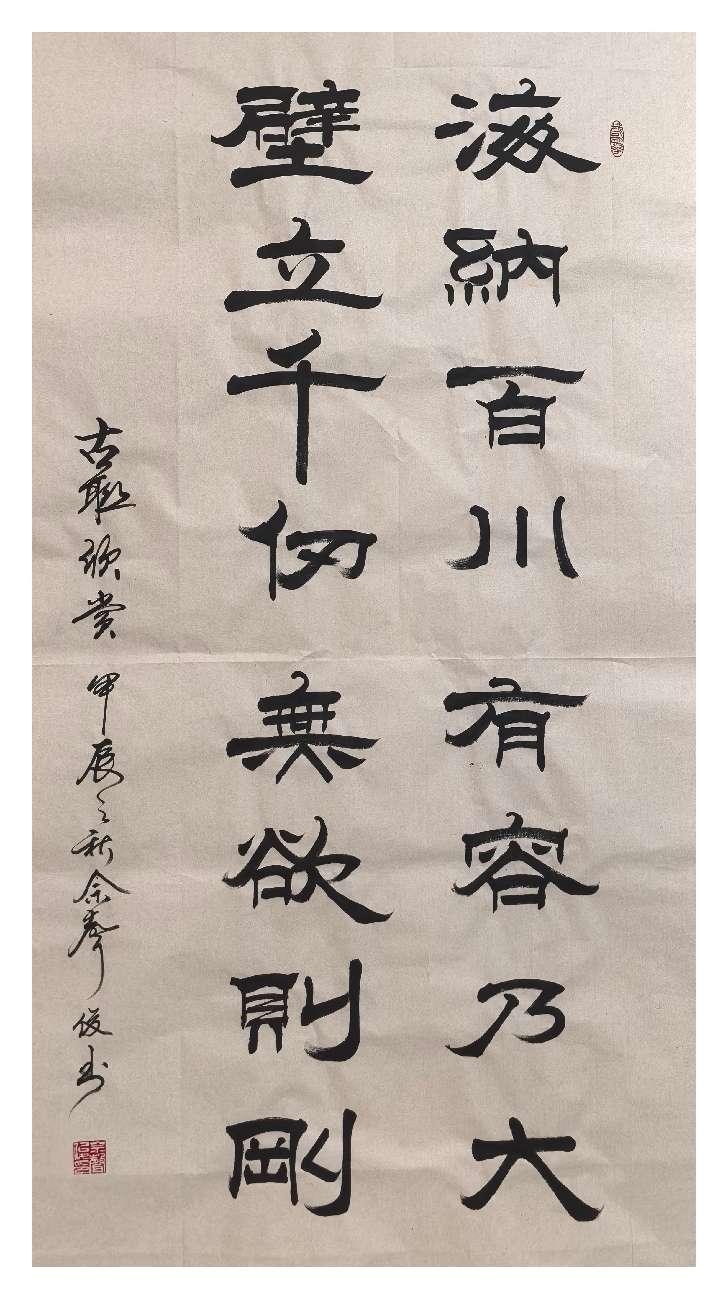 海納百川有容乃大
壁立千仞無欲則剛
古聯欣賞 甲辰之秋余聲俊书